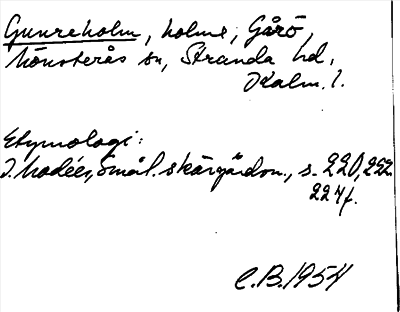 Gunreholm, holme, Gårö,
Mönsterås sn, Stranda hd,
Kalm. l.
Etymologi:
I. Modéer, Smål. skärgårdsn., s. 220, 222
224f.
C.B. 1954